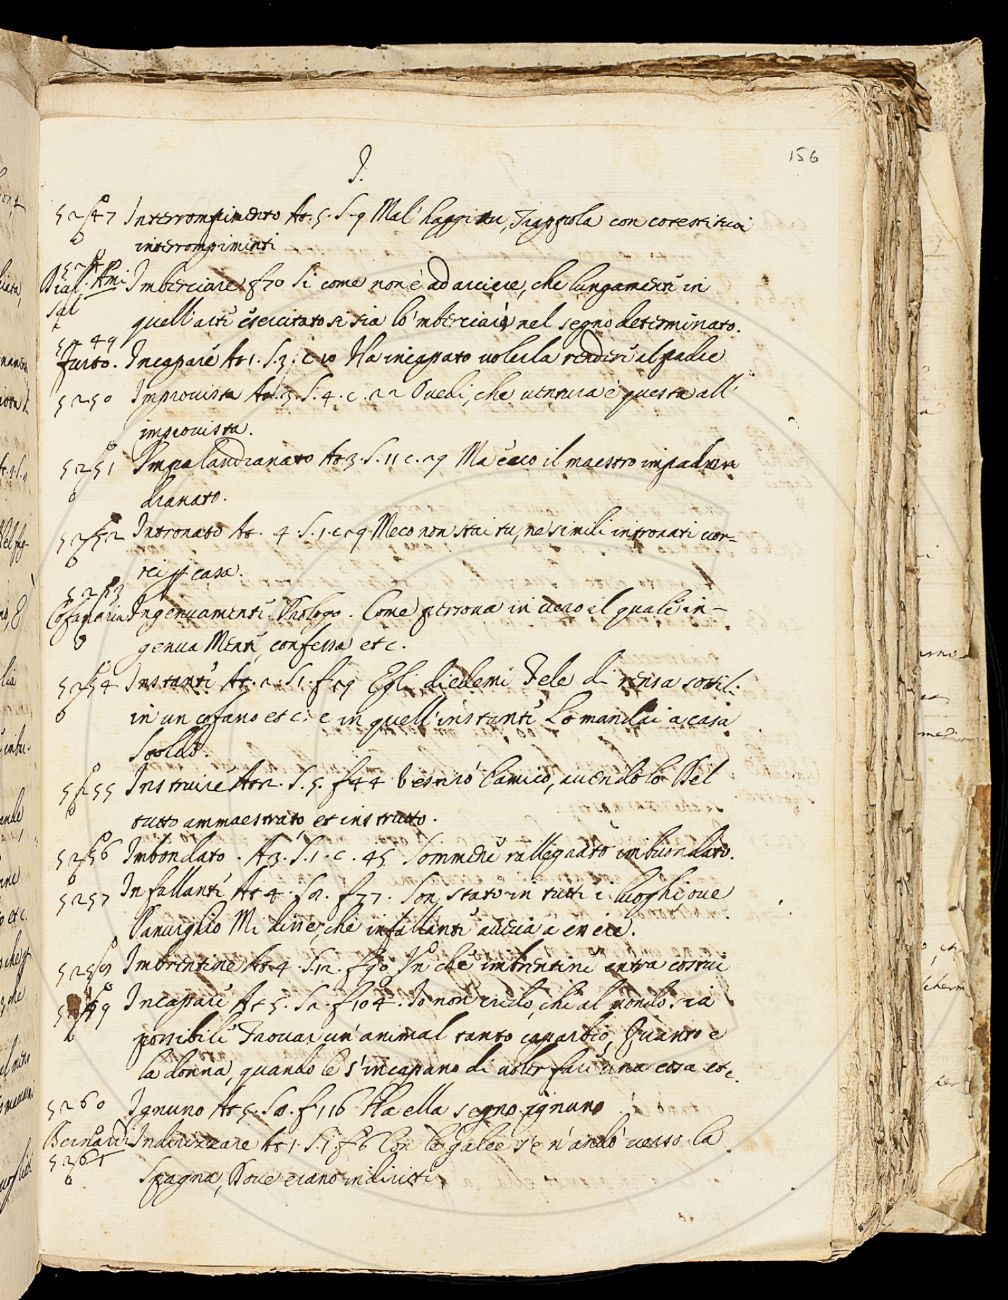 156
I.
5247 Interrompimento At. 5. S. 9 Mal' haggi tu, Trappola con cotesti tuoi
interrompimenti
Imberciare f 70 Si come non è ad arciere, che lungamente in
Sal
quell'arte esercitato si sia lo'mberciare nel segno determinato.
5249
Furto. Incapare At 1. S. 3. c 10 Ha incapato volerla rendere al padre
5250 Improvista At. 3. S. 4. c. 22 Vuedi, che ventura è questa all'
improvista.
5251 Impalandranato At 3. S. 11 c. 29 Ma ecco il maestro impalan
dranato.
5252 Intronato At. 4 S. 1. c. 59 Meco non stai tu, ne simili intronati vor-
rei p casa.
5253
Cofanaria Ingenuamente. Prologo. Come persona in vero il quale in-
genua Mente, confessa etc.
5254 Instante At. 2. S. 1. f 29 Egli diedemi Tele di rensa sottile
in un cofano etc. e in quell'instante Lo mandai a casa
Soldo.
5255 Instruire At 2. S. 5. f 44 Vestirò l'amico, avendolo Del
tutto ammaestrato et instrutto.
5256 Imbondato. At 3. S. 1. c. 45 Sommene rallegrato imbuondato.
5257 Infallante At 4. S 2. f 77. Son stato in tutti i luoghi ove
Panurghio Mi disse, che infallante avevia a essere.
Imbrentine At. 4 S. 12. f 90 Un che imbrentine entra costui
Incapare At 5. S 2. f 104. Io non credo, che al mondo sia
possibile Trovar un'animal tanto caparbio, Quanto è
la donna, quando le s'incapano di voler fare una cosa etc.
5260 Ignuno At. 5. S 2. f 116 Ha ella segno ignuno
Bernardi Indirizzare At 1. S. 1 f 6 Con le galee se n'andò verso la
5261
Spagna, Dove erano indiritte